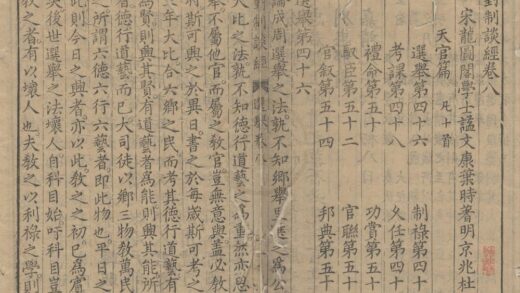 對制談經卷八
宋龍圖閣學士謚文康葉時著明京兆杜
天官篇 凡十首
選舉第四十六 制祿第四十
考課第四十八 久任第四十
禮命第五十 功賞第五十
馭臣第五十二 官聯第五十
官敘第五十四 邦典第五十
選舉第四十六
論成周選舉之法孰不知鄉舉里選之為公
大比之法孰不知德行道藝之為重然亦思
舉不屬他官而屬之教官豈無意與蓋必教
斯可興之於異日書之於每歲斯可考之
年大比合六鄉之民而考其德行道藝有
為賢則興其賢有道藝者為能則興其能所
者德行道藝而已大司徒以鄉三物教萬民
之所謂六德六行六藝者即此物也平日之
此則今日之興者亦以此教之之初已為賓
矣後世選舉之法壞人自科目始吁科目豈
教之者有以壞人也夫教之以利祿之學則